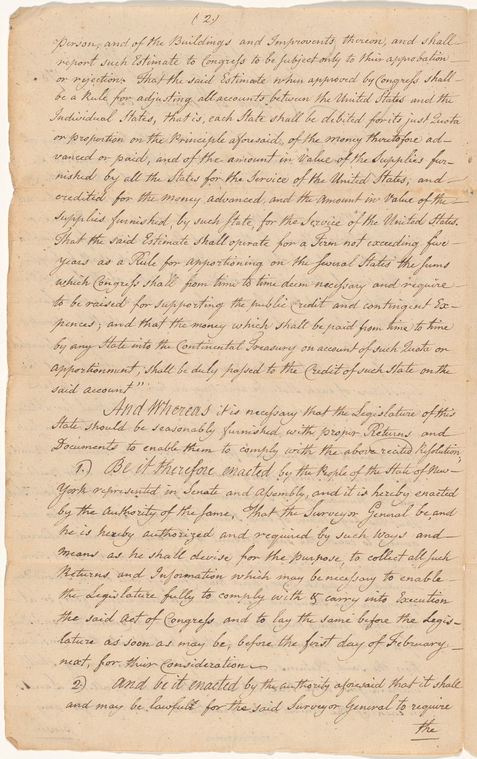 (2)
person, and of the Buildings and Improvements thereon, and shall
report such Estimate to Congress to be subject only to their approbation
or rejection. That the said Estimate when approved by Congress shall
be a Rule for adjusting all accounts between the United States and the
Individual States, that is, each State shall be debited for its just Quota
or proportion on the Principle aforesaid, of the money theretofore ad-
vanced or paid, and of the amount in Value of the Supplies fur-
nished by all the States for the Service of the United States; and
credited for the money advanced, and the amount in Value of the
Supplies furnished, by such State, for the Service of the United States.
That the said Estimate shall operate for a Term not exceeding five
years as a Rule for apportioning on the several States the sums
which Congress shall from time to time deem necessary and require
to be raised for supporting the public Credit and contingent Ex-
pences; and that the money which shall be paid from time to time
by any State into the Continental Treasury on account of such Quota or
apportionment, shall be duly passed to the Credit of such State on the
said account"
And Whereas it is necessary that the Legislature of this
State should be seasonably furnished with proper Returns and
Documents to enable them to comply with the above recited Resolution,
1.) Be it therefore enacted by the People of the State of New-
York represented in Senate and Assembly, and it is hereby enacted
by the Authority of the same, That the Surveyor General be, and
he is hereby authorized and required by such Ways and
means as he shall devise for the purpose, to collect all such
Returns and Information which may be necessary to enable
the Legislature fully to comply with & carry into Execution
the said Act of Congress and to lay the same before the Legis-
lature as soon as may be, before the first day of February
next, for their consideration
2) And be it enacted by the authority aforesaid that it shall
and may be lawfull for the said Surveyor General to require
the